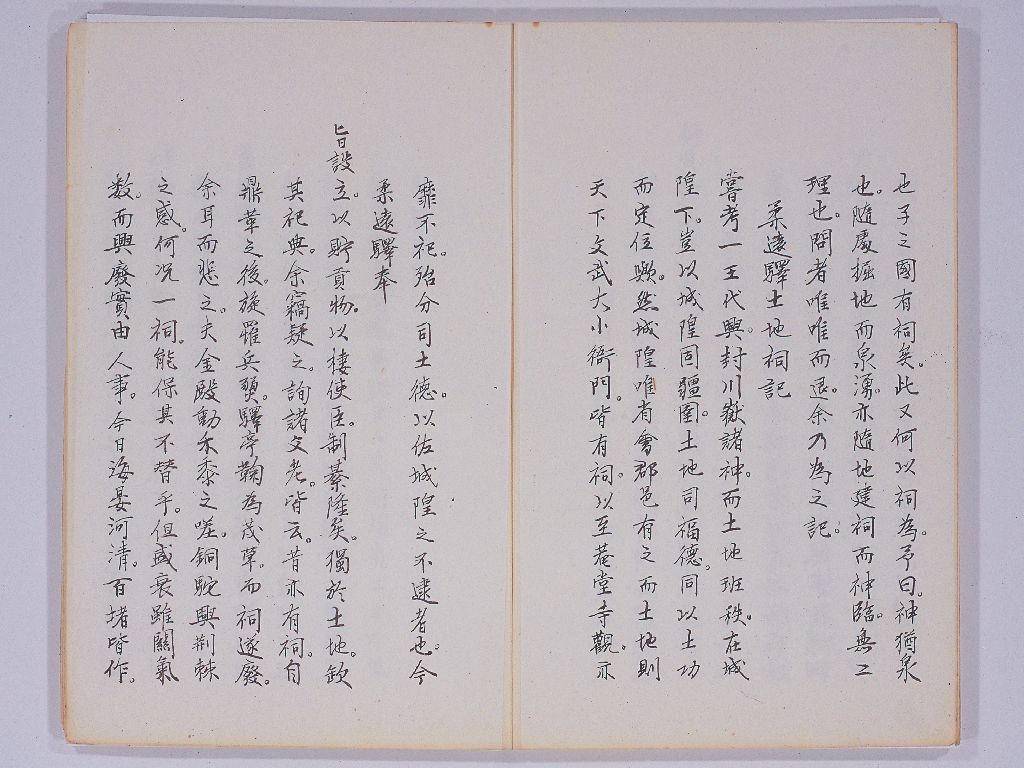 也子之國有祠矣。此又何以祠為。予曰。神猶泉
也。隨處掘地而泉湧。亦隨地建祠而神臨。無二
理也。問者唯唯而退。余乃為之記。
柔遠驛土地祠記
嘗考一王代興。封川嶽諸神。而土地班秩。在城
隍下。豈以城隍固疆圉。土地司福德。同以土功
而定位歟。然城隍唯省會郡邑有之而土地則
天下文武大小衙門。皆有祠。以至菴堂寺觀。亦
靡不祀。殆分司土德。以佐城隍之不逮者也。今
柔遠驛奉
旨設立。以貯貢物。以棲使臣。制綦隆矣。獨於土地。欽
其祀典。余竊疑之。詢諸父老。皆云。昔亦有祠。自
鼎革之後。旋罹兵燹。驛亭鞠為茂草。而祠遂廢。
余耳而悲之。夫金殿動禾黍之嗟。銅駝興荆棘
之感。何况一祠。能保其不替乎。但盛衰雖關氣
数。而興廢實由人事。今日海晏河清。百堵皆作。